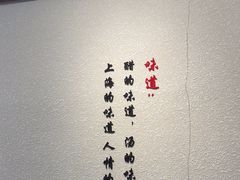 味道:
醋的味道,汤的味
上海的味道人情的